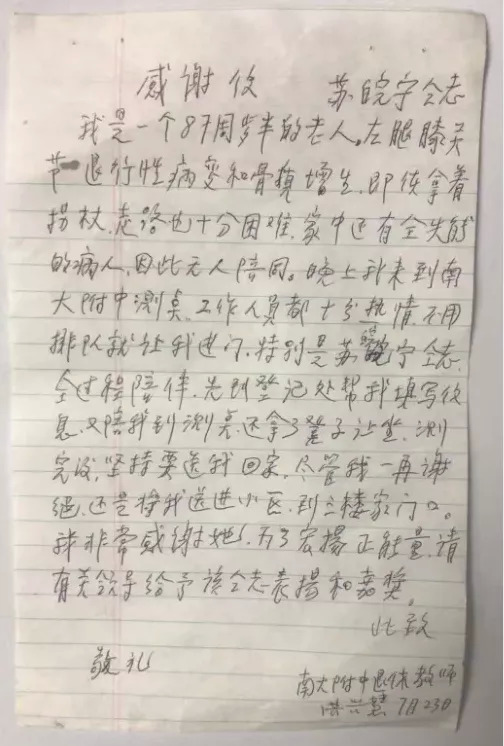 感谢信 苏皖宁同志
我是一个87周岁半的老人。左腿膝关
节退行性病变和骨质增生，即使拿着
拐杖，走路也十分困难，家中还有全失能
的病人，因此无人陪同。晚上我来到南
大附中测点，工作人员都十分热情，不用
排队就让我进门，特别是苏皖宁同志，
全过程陪伴，先到登记处帮我填写信
息，又陪我到测点，还拿了凳子让坐，测
完后，坚持要送我回家，尽管我一再谢
绝，还是将我送进小区，到三楼家门口。
我非常感谢她！为了宏揚正能量，请
有关领导给予该同志表揚和嘉奖。
此致
敬礼
南大附中退休教师
洪兴慧 7月23日